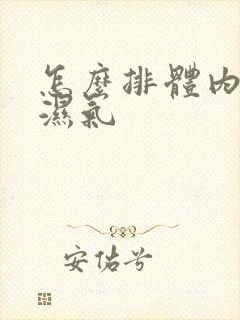 怎麼排體內
濕氣
安佑兮